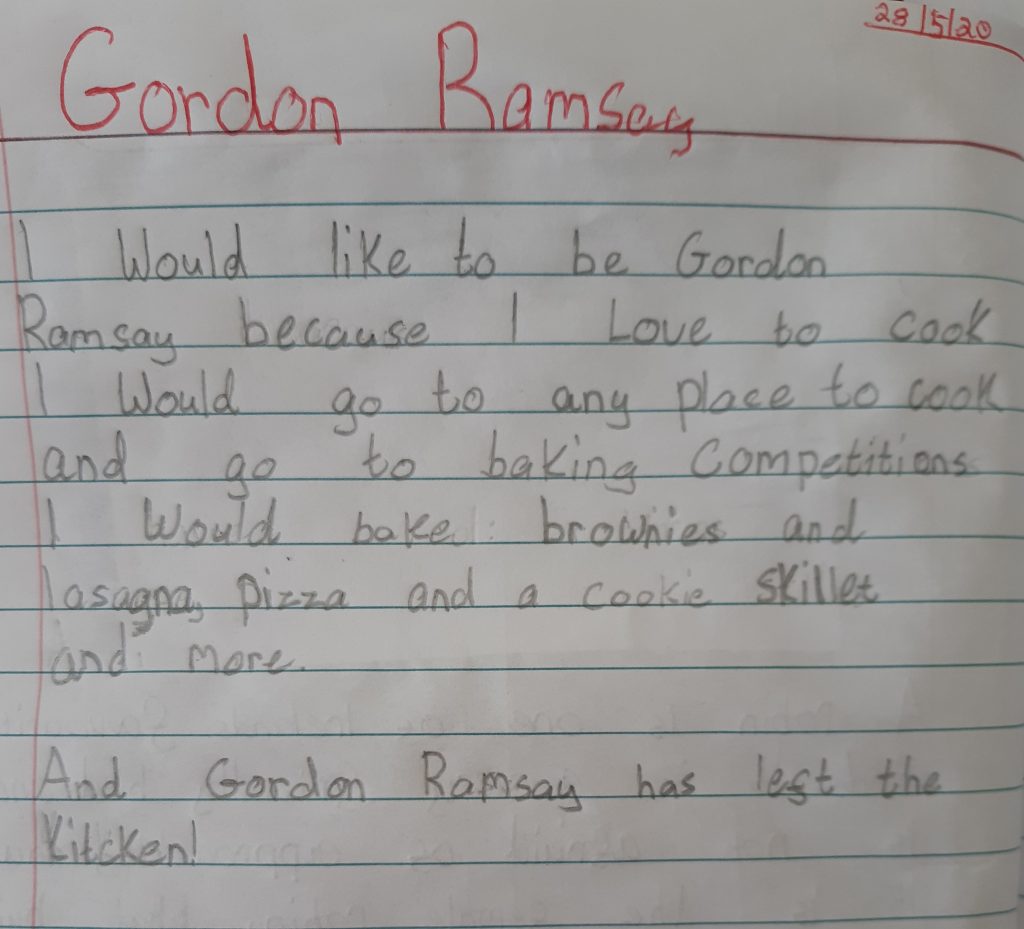 28/5/20
Gordon Ramsay
I Would like to be Gordon
Ramsay because I Love to cook
I Would go to any place to cook
and go to baking Competitions
I Would bake brownies and
lasagna, pizza and a cookie skillet
and more.
And Gordon Ramsay has left the
Kitcken!